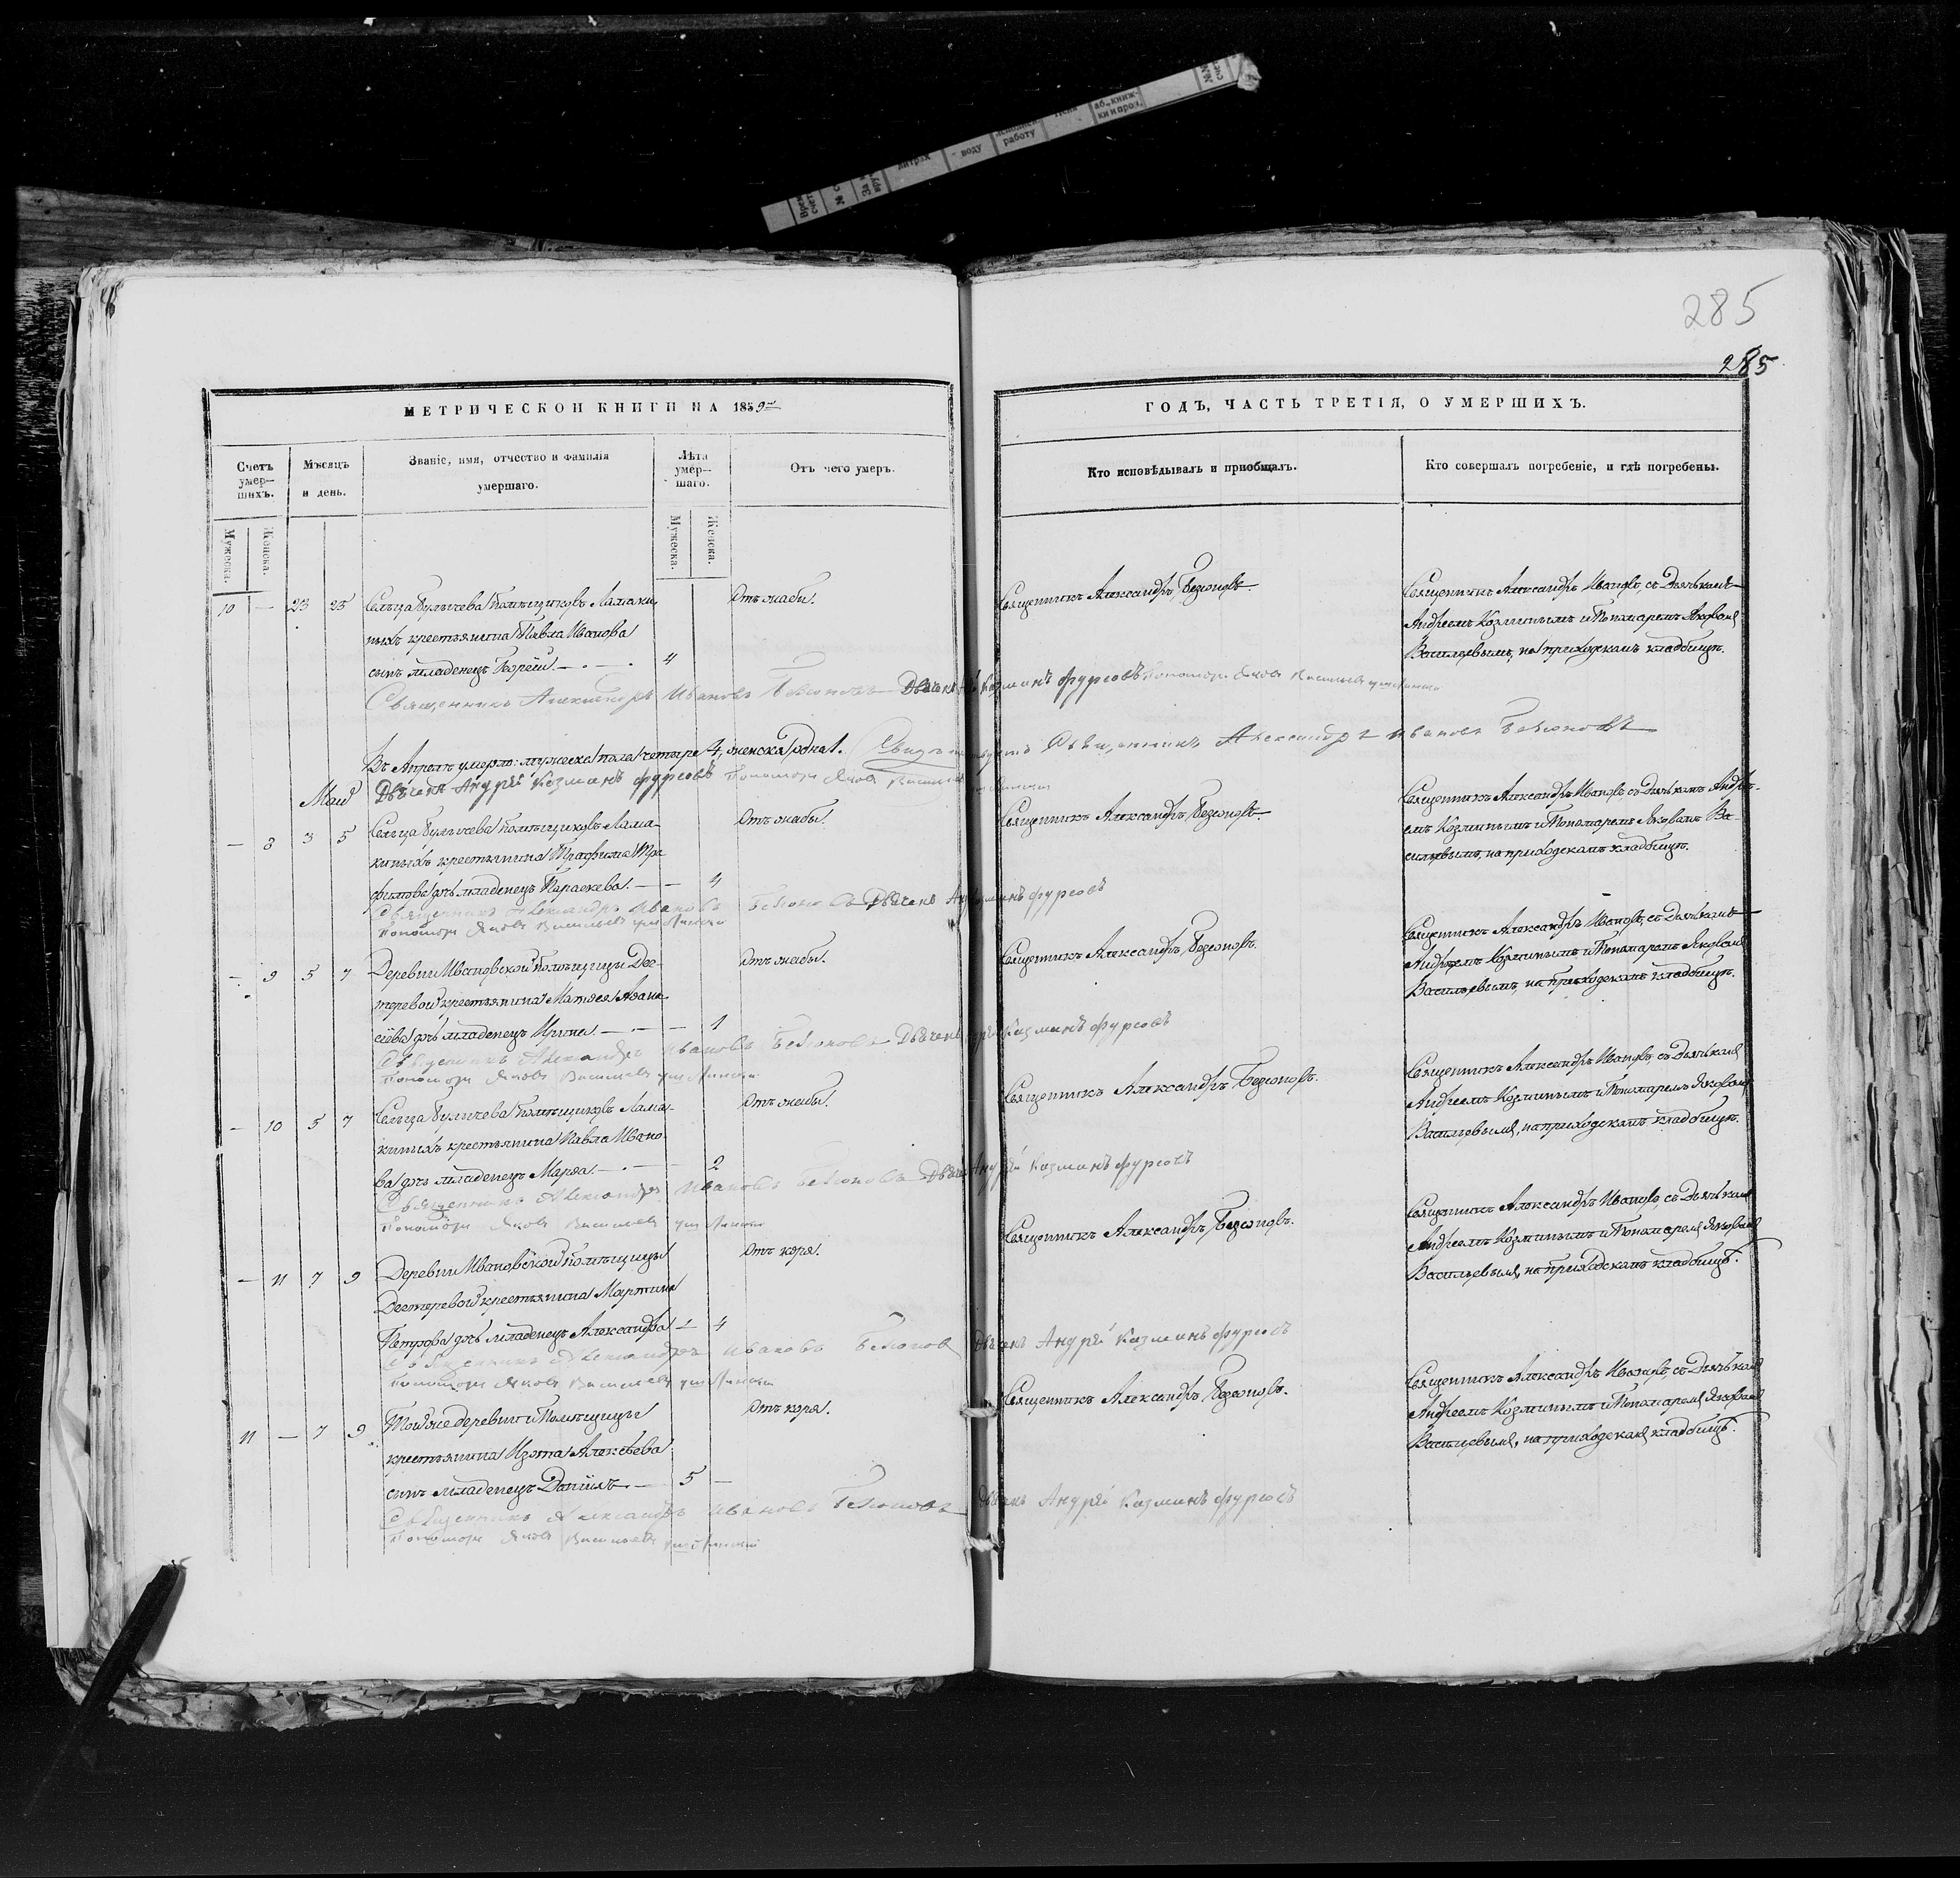 285
285
МЕТРИЧЕСКОЙ КНИГИ НА 1859
ГОДЪ, ЧАСТЬ ТРЕТІЯ, О УМЕРШИХЪ.
Счетъ умер-шихъ.
Мѣсяцъ и день.
Званіе, имя, отчество и фамилія умершаго.
Лѣта умер-шаго.
Отъ чего умеръ.
Кто исповѣдывалъ и пріобщалъ.
Кто совершалъ погребеніе, и гдѣ погребены.
Мужеска.
Женска.
Мужеска.
Женска.
10 — 23 25
Сельца Булычева помѣщиковъ Ламаки-
ныхъ крестьянина Павла Иванова
сынъ младенецъ Георгій 4
Отъ жабы.
Священникъ Александръ Безсоновъ
Священникъ Александръ Ивановъ, съ Дьячкомъ
Андреемъ Козминымъ и Пономаремъ Яковомъ
Васильевымъ, на приходскомъ кладбищѣ.
Священникъ Александръ Ивановъ Безсоновъ Дьячекъ Козминъ Фурсовъ Пономарь Яковъ Васильевъ
Въ Апрелѣ умерло: мужеска пола четыре 4, женска одна 1. Священникъ Александръ Ивановъ Безсоновъ
Дьячекъ Андрей Козминъ Фурсовъ Пономарь Яковъ Васильевъ
Маій
— 8 3 5
Сельца Булычева помѣщиковъ Лама-
киныхъ крестьянина Трафима Тра-
фимова дочь младенецъ Параскева. 4
Отъ жабы.
Священникъ Александръ Безсоновъ
Священникъ Александръ Ивановъ, съ Дьячкомъ Андре-
емъ Козминымъ и Пономаремъ Яковомъ Ва-
сильевымъ, на приходскомъ кладбищѣ.
Священникъ Александръ Ивановъ Безсоновъ Дьячекъ Козминъ Фурсовъ
Пономарь Яковъ Васильевъ
— 9 5 7
Деревни Ивановской помѣщицы Дех-
теревой крестьянина Матвея Афана-
сіева дочь младенецъ Ирина 1
Отъ жабы.
Священникъ Александръ Безсоновъ.
Священникъ Александръ Ивановъ, съ Дьячкомъ
Андреемъ Козминымъ и Пономаремъ Яковомъ
Васильевымъ, на приходскомъ кладбищѣ.
Священникъ Александръ Ивановъ Безсоновъ Дьячекъ Козминъ Фурсовъ
Пономарь Яковъ Васильевъ
— 10 5 7
Сельца Булычева помѣщиковъ Лама-
киныхъ крестьянина Павла Ивано-
ва дочь младенецъ Марѳа 2
Отъ жабы.
Священникъ Александръ Безсоновъ.
Священникъ Александръ Ивановъ, съ Дьячкомъ
Андреемъ Козминымъ и Пономаремъ Яковомъ
Васильевымъ, на приходскомъ кладбищѣ.
Священникъ Александръ Ивановъ Безсоновъ Дьячекъ Андрей Козминъ Фурсовъ
Пономарь Яковъ Васильевъ
— 11 7 9
Деревни Ивановской помѣщицы
Дехтеревой крестьянина Мартина
Петрова дочь младенецъ Александра 4
Отъ коря.
Священникъ Александръ Безсоновъ.
Священникъ Александръ Ивановъ, съ Дьячкомъ
Андреемъ Козминымъ и Пономаремъ Яковомъ
Васильевымъ, на приходскомъ кладбищѣ.
Священникъ Александръ Ивановъ Безсоновъ Дьячекъ Андрей Козминъ Фурсовъ
Пономарь Яковъ Васильевъ
11 — 7 9
Той же деревни и Помѣщицы
крестьянина Изота Алексѣева
сынъ младенецъ Даніилъ 5 —
Отъ коря.
Священникъ Александръ Безсоновъ.
Священникъ Александръ Ивановъ, съ Дьячкомъ
Андреемъ Козминымъ и Пономаремъ Яковомъ
Васильевымъ, на приходскомъ кладбищѣ.
Священникъ Александръ Ивановъ Безсоновъ Дьячекъ Андрей Козминъ Фурсовъ
Пономарь Яковъ Васильевъ